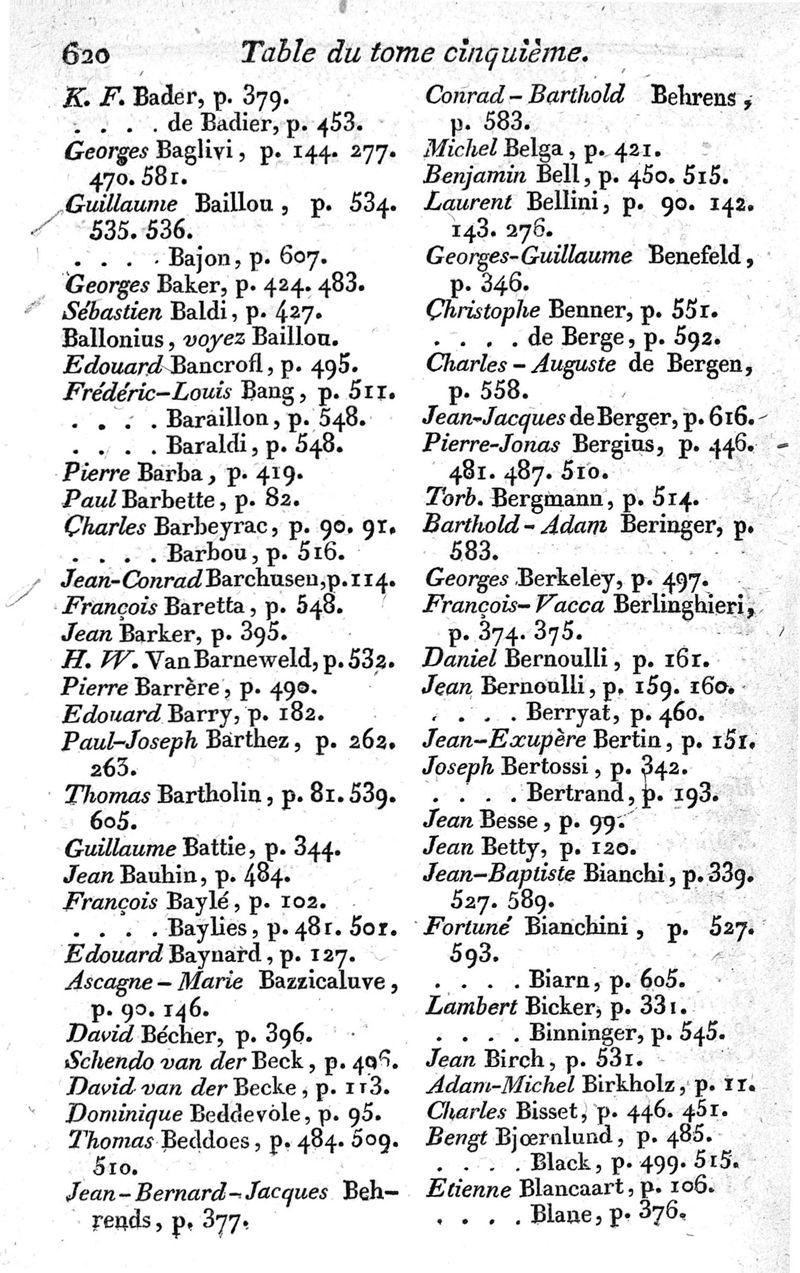 620 Table du tome cinquième.
K. F. Bader, p. 379.
. . . . de Badier, p. 453.
Georges Baglivi, p. 144. 277.
470. 581.
Guillaume Baillou, p. 534.
535. 536.
. . . . Bajon, p. 607.
Georges Baker, p. 424. 483.
Sébastien Baldi, p. 427.
Ballonius, voyez Baillou.
Edouard Bancrofl, p. 495.
Frédéric-Louis Bang, p. 511.
. . . . Baraillon, p. 548.
. . . . Baraldi, p. 548.
Pierre Barba, p. 419.
Paul Barbette, p. 82.
Charles Barbeyrac, p. 90. 91.
. . . . Barbou, p. 516.
Jean-Conrad Barchusen, p. 114.
François Baretta, p. 548.
Jean Barker, p. 395.
H. W. Van Barneweld, p. 532.
Pierre Barrère, p. 490.
Edouard Barry, p. 182.
Paul-Joseph Barthez, p. 262.
263.
Thomas Bartholin, p. 81. 539.
605.
Guillaume Battie, p. 344.
Jean Bauhin, p. 484.
François Baylé, p. 102.
. . . . Baylies, p. 481. 501.
Edouard Baynard, p. 127.
Ascagne-Marie Bazzicaluve,
p. 90. 146.
David Bécher, p. 396.
Schendo van der Beck, p.
David van der Becke, p. 113.
Dominique Beddevole, p. 95.
Thomas Beddoes, p. 484. 509.
510.
Jean-Bernard-Jacques Beh-
rends, p. 377.
Conrad-Barthold Behrens,
p. 583.
Michel Belga, p. 421.
Benjamin Bell, p. 450. 515.
Laurent Bellini, p. 90. 142.
143. 276.
Georges-Guillaume Benefeld,
p. 346.
Christophe Benner, p. 551.
. . . . de Berge, p. 592.
Charles-Auguste de Bergen,
p. 558.
Jean-Jacques de Berger, p. 616.
Pierre-Jonas Bergius, p. 446.
481. 487. 510.
Torb. Bergmann, p. 514.
Barthold-Adam Beringer, p.
583.
Georges Berkeley, p. 497.
François-Vacca Berlinghieri,
p. 374. 375.
Daniel Bernoulli, p. 161.
Jean Bernoulli, p. 159. 160.
. . . . Berryat, p. 460.
Jean-Exupère Bertin, p. 151.
Joseph Bertossi, p. 342.
. . . . Bertrand, p. 193.
Jean Besse, p. 99.
Jean Betty, p. 120.
Jean-Baptiste Bianchi, p. 339.
527. 589.
Fortuné Bianchini, p. 527.
593.
. . . . Biarn, p. 605.
Lambert Bicker, p. 331.
. . . . Binninger, p. 545.
Jean Birch, p. 531.
Adam-Michel Birkholz, p. 11.
Charles Bisset, p. 446. 451.
Bengt Bjœrnlund, p. 485.
. . . . Black, p. 499. 515.
Etienne Blancaart, p. 106.
. . . . Blane, p. 376.